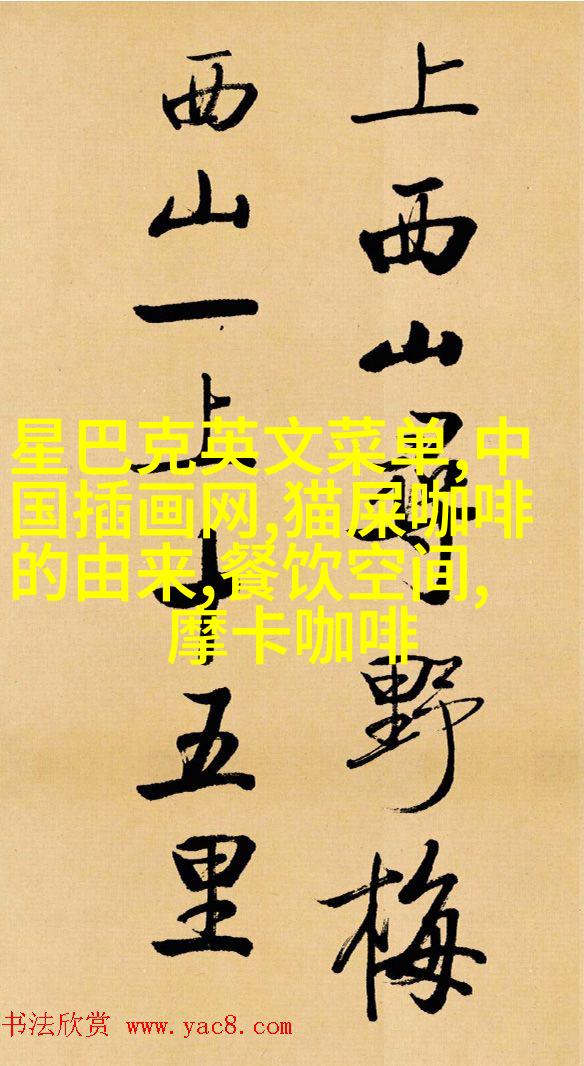 上西山野梅
西山一上五里
星巴克英文菜单,中
国插画网,猫屎咖啡
的由来,餐饮空间,
摩卡咖啡
书法欣赏 www.yac8.com